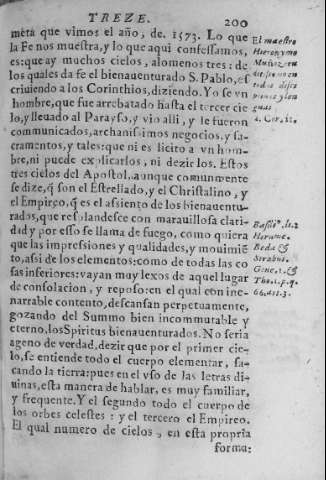 TREZE. 200
meta que vimos el año, de. 1573. Lo que
la Fe nos muestra, y lo que aqui confessamos,
es: que ay muchos cielos, alomenos tres: de
los quales da fe el bienauenturado S. Pablo, es
criuiendo a los Corinthios, diziendo. Yo se vn
hombre, que fue arrebatado hasta el tercer cie
lo, y lleuado al Parayso, y vio alli, y le fueron
communicados, archanissimos negocios, y sa-
cramentos, y tales: que ni es licito a vn hom-
bre, ni puede explicarlos, ni dezir los. Estos
tres cielos del Apostol, aunque comunmente
se dize, q̃ son el Estrellado, y el Christalino, y
el Empireo, q̃ es el assiento de los bienauentu-
rados, que resplandesce con marauillosa clari-
dad y por esso se llama de fuego, como quiera
que las impressiones y qualidades, y mouimiẽ
to, assi de los elementos: como de todas las co
sas inferiores: vayan muy lexos de aquel lugar
de consolacion, y reposo: en el qual con ine-
narrable contento, descansan perpetuamente,
gozando del Summo bien incommutable y
eterno, los Spiritus bienauenturados. No seria
ageno de verdad, dezir que por el primer cie-
lo, se entiende todo el cuerpo elementar, sa-
cando la tierra: pues en el vso de las letras di-
uinas, esta manera de hablar, es muy familiar,
y frequente. Y el segundo todo el cuerpo de
los orbes celestes: y el tercero el Empireo.
El qual numero de cielos, en esta propria
forma:
El maestro
Hieronymo
Muñoz, en
2. Cor. 12.
Basili⁹. li. 2
Herame.
Beda &
Strabus.
Gene. 1. &
Tho. 1. p. q.
66. ar. 3.